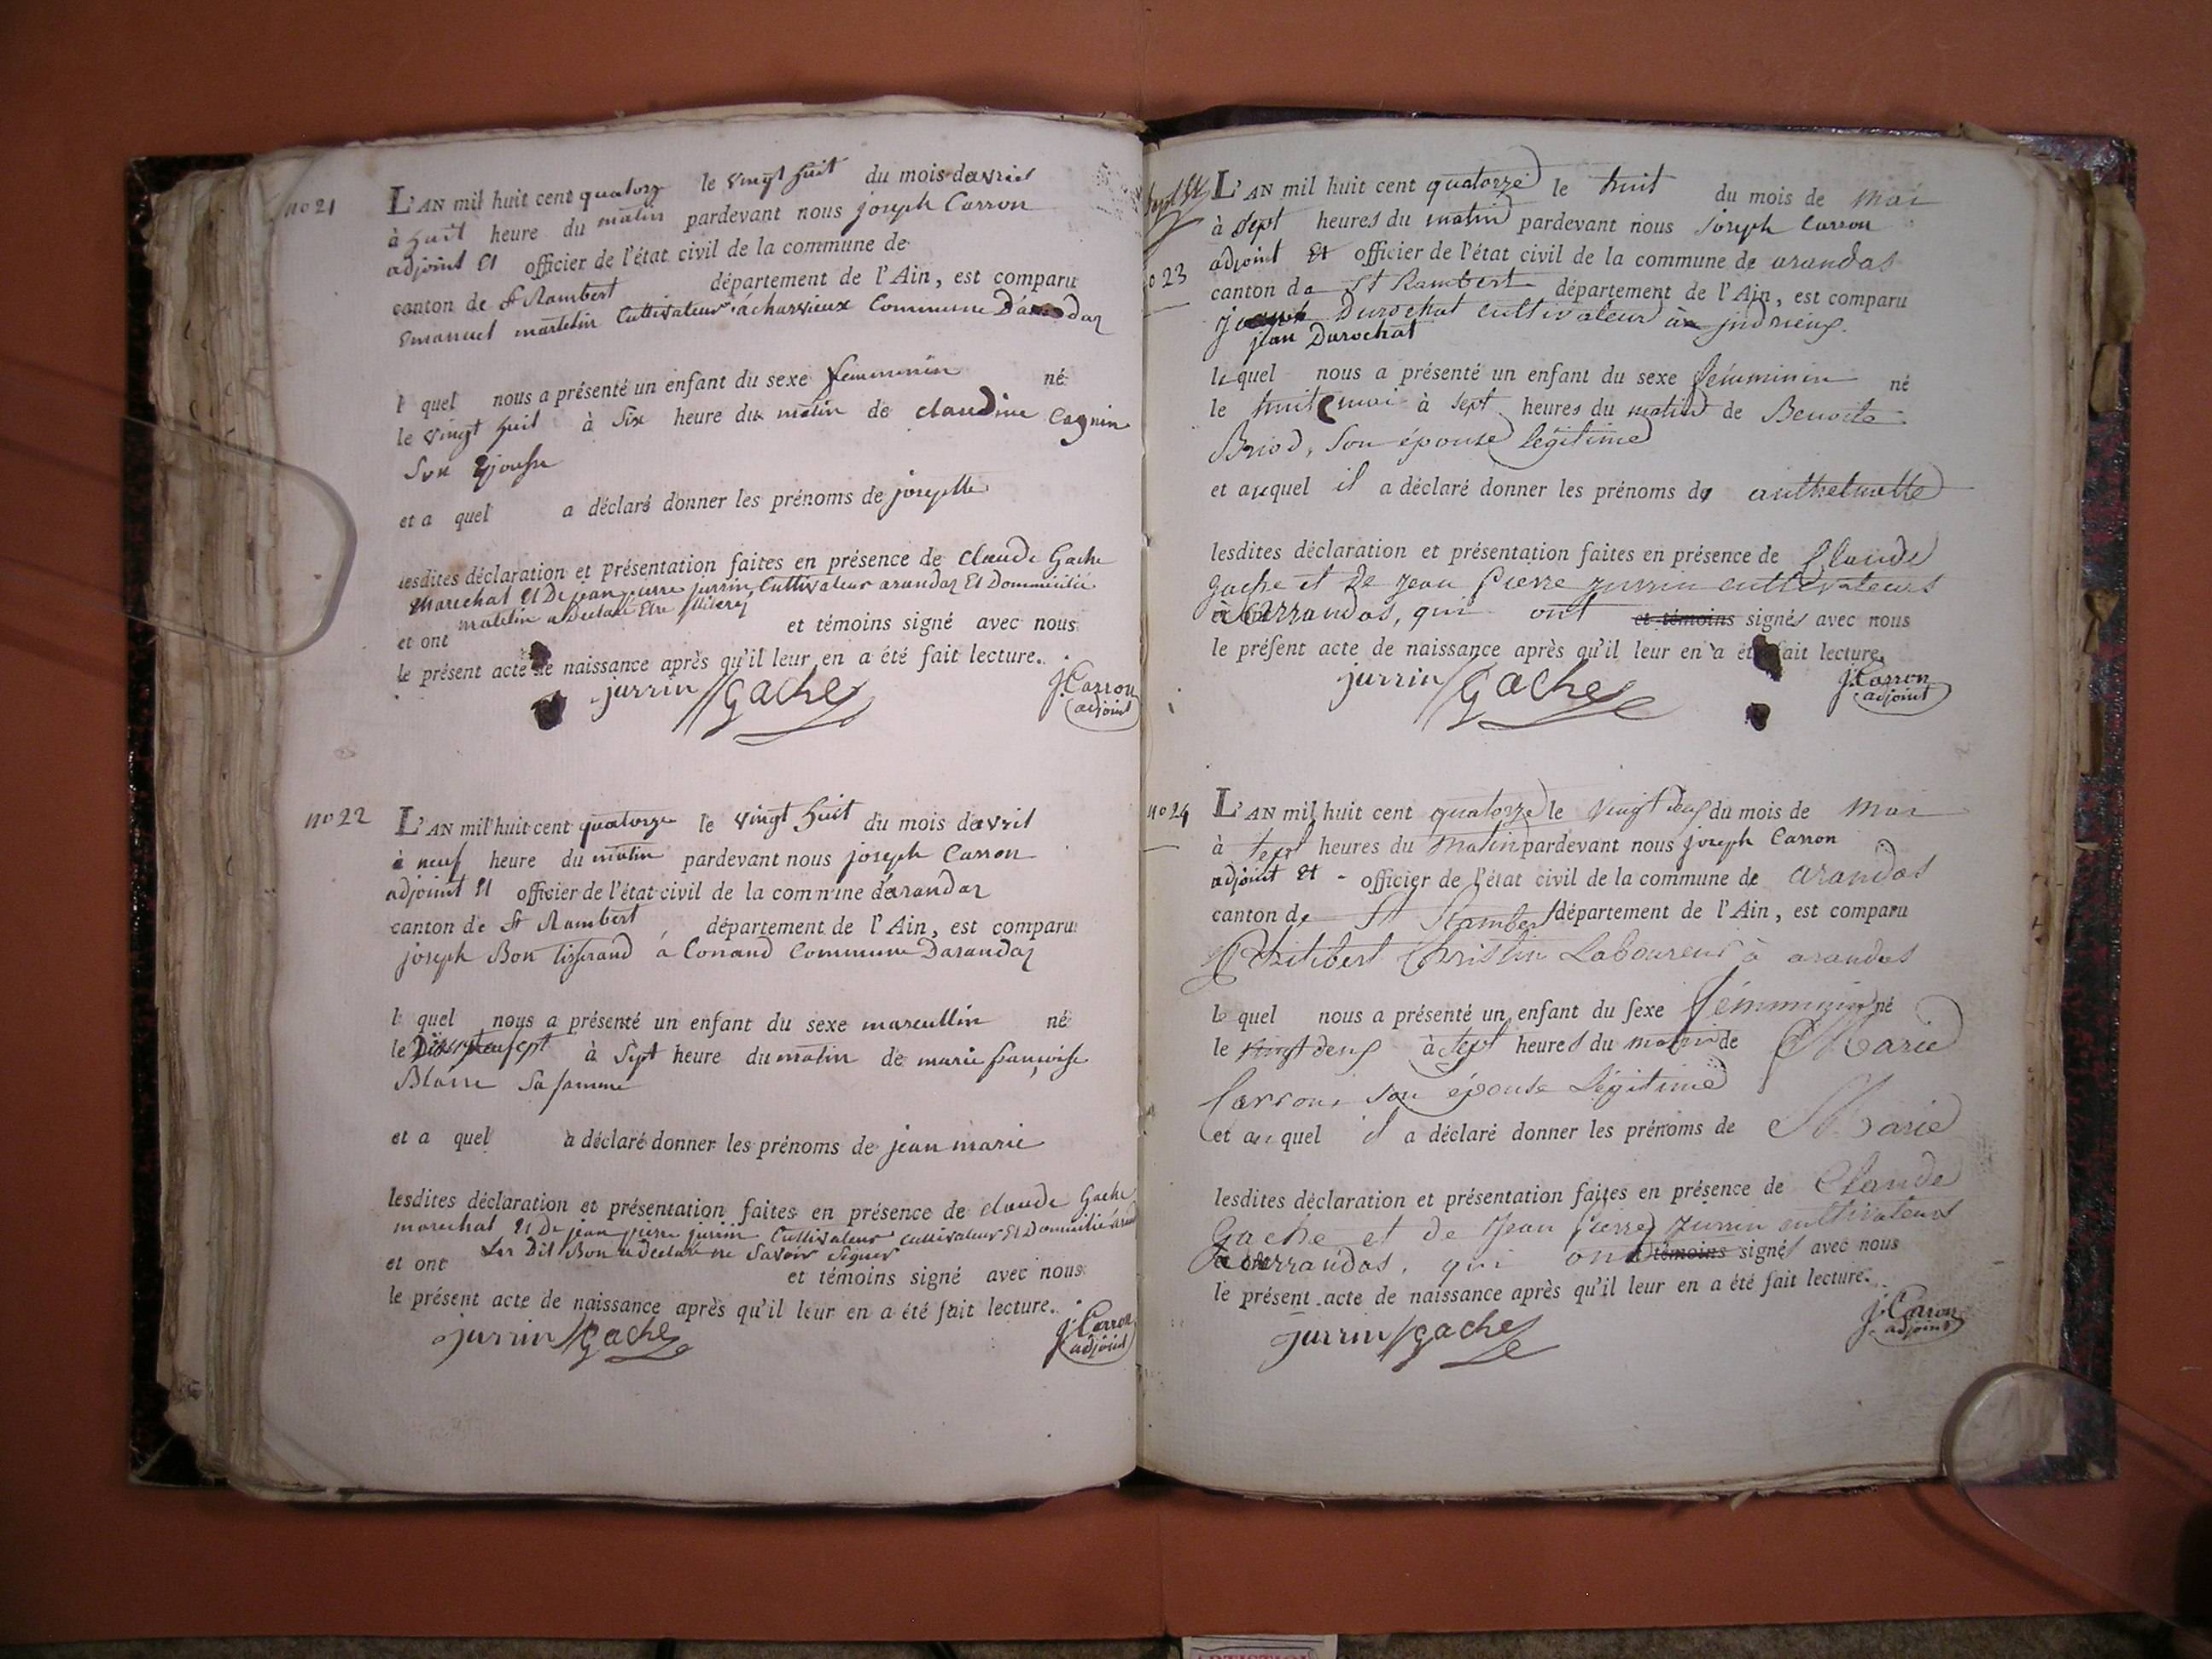 no 21
L'AN mil huit cent quatorz le vingt huit du mois davril
à huit heure du matin pardevant nous joseph Carron
adjoint et officier de l'état civil de la commune de
canton de St Rambert département de l'Ain, est comparu
Emanuel martelin Cultivateur à charvieux Commune
l quel nous a présenté un enfant du sexe femminin né
le vingt huit à Six heure du matin de claudine Cagnin
Son Epouse
et a quel a déclaré donner les prénoms de josephte
lesdites déclaration et présentation faites en présence de Claude Gache
Marechal Et De jean pierre jurrin Cultivateur arandaz Et Dommicilié
et ont et témoins signé avec nous
le présent acte de naissance après qu'il leur en a été fait lecture.
jurrin Gache J. Carron
adjoint
no 22
L'AN mil huit cent quatorze le vingt huit du mois davril
à neuf heure du matin pardevant nous joseph Carron
adjoint et officier de l'état civil de la commune darandaz
canton de St Rambert département de l'Ain, est comparu
joseph Bon tisserand á Conand Commune Darandaz
l quel nous a présenté un enfant du sexe mascullin né
le à Sept heure du matin de marie françoise
sa famme
et a quel a déclaré donner les prénoms de jean marie
lesdites déclaration et présentation faites en présence de claude Gache
marechal Et De jean pierre jurrin Cultivateur cultivateur Et Domicilié
Ler Dit Bon a Declaré ne Savoir Signer
et ont et témoins signé avec nous
le présent acte de naissance après qu'il leur en a été fait lecture.
jurrin Gache J. Carron
adjoint
L'AN mil huit cent quatorze le huit du mois de mai
à sept heures du matin pardevant nous joseph Carron
adjoint Et officier de l'état civil de la commune de arandas
o 23
canton de St Rambert département de l'Ain, est comparu
Durochat cultivateur à indrieux.
jean Durochat
le quel nous a présenté un enfant du sexe féminin né
le huit mai à sept heures du matin de Benoite
Briod, son épouse légitime
et auquel il a déclaré donner les prénoms de anthelmette
lesdites déclaration et présentation faites en présence de Claude
gache et de Jean Pierre jurrin cultivateurs
à arrandas, qui ont et témoins signés avec nous
le présent acte de naissance après qu'il leur en a été fait lecture.
jurrin Gache J. Carron
adjoint
no 24
L'AN mil huit cent quatorze le vingt deux du mois de mai
à sept heures du matin pardevant nous joseph Carron
adjoint Et officier de l'état civil de la commune de arandas
canton de St Rambert département de l'Ain, est comparu
Philibert Christin Laboureur à arandas
le quel nous a présenté un enfant du sexe féminin né
le vingt deux à sept heures du matin de Marie
Carron, son épouse légitime
et au quel il a déclaré donner les prénoms de Marie
lesdites déclaration et présentation faites en présence de Claude
Gache et de Jean Pierre jurrin cultivateurs
à arrandas, qui ont témoins signés avec nous
le présent acte de naissance après qu'il leur en a été fait lecture.
jurrin gache J. Carron
adjoint